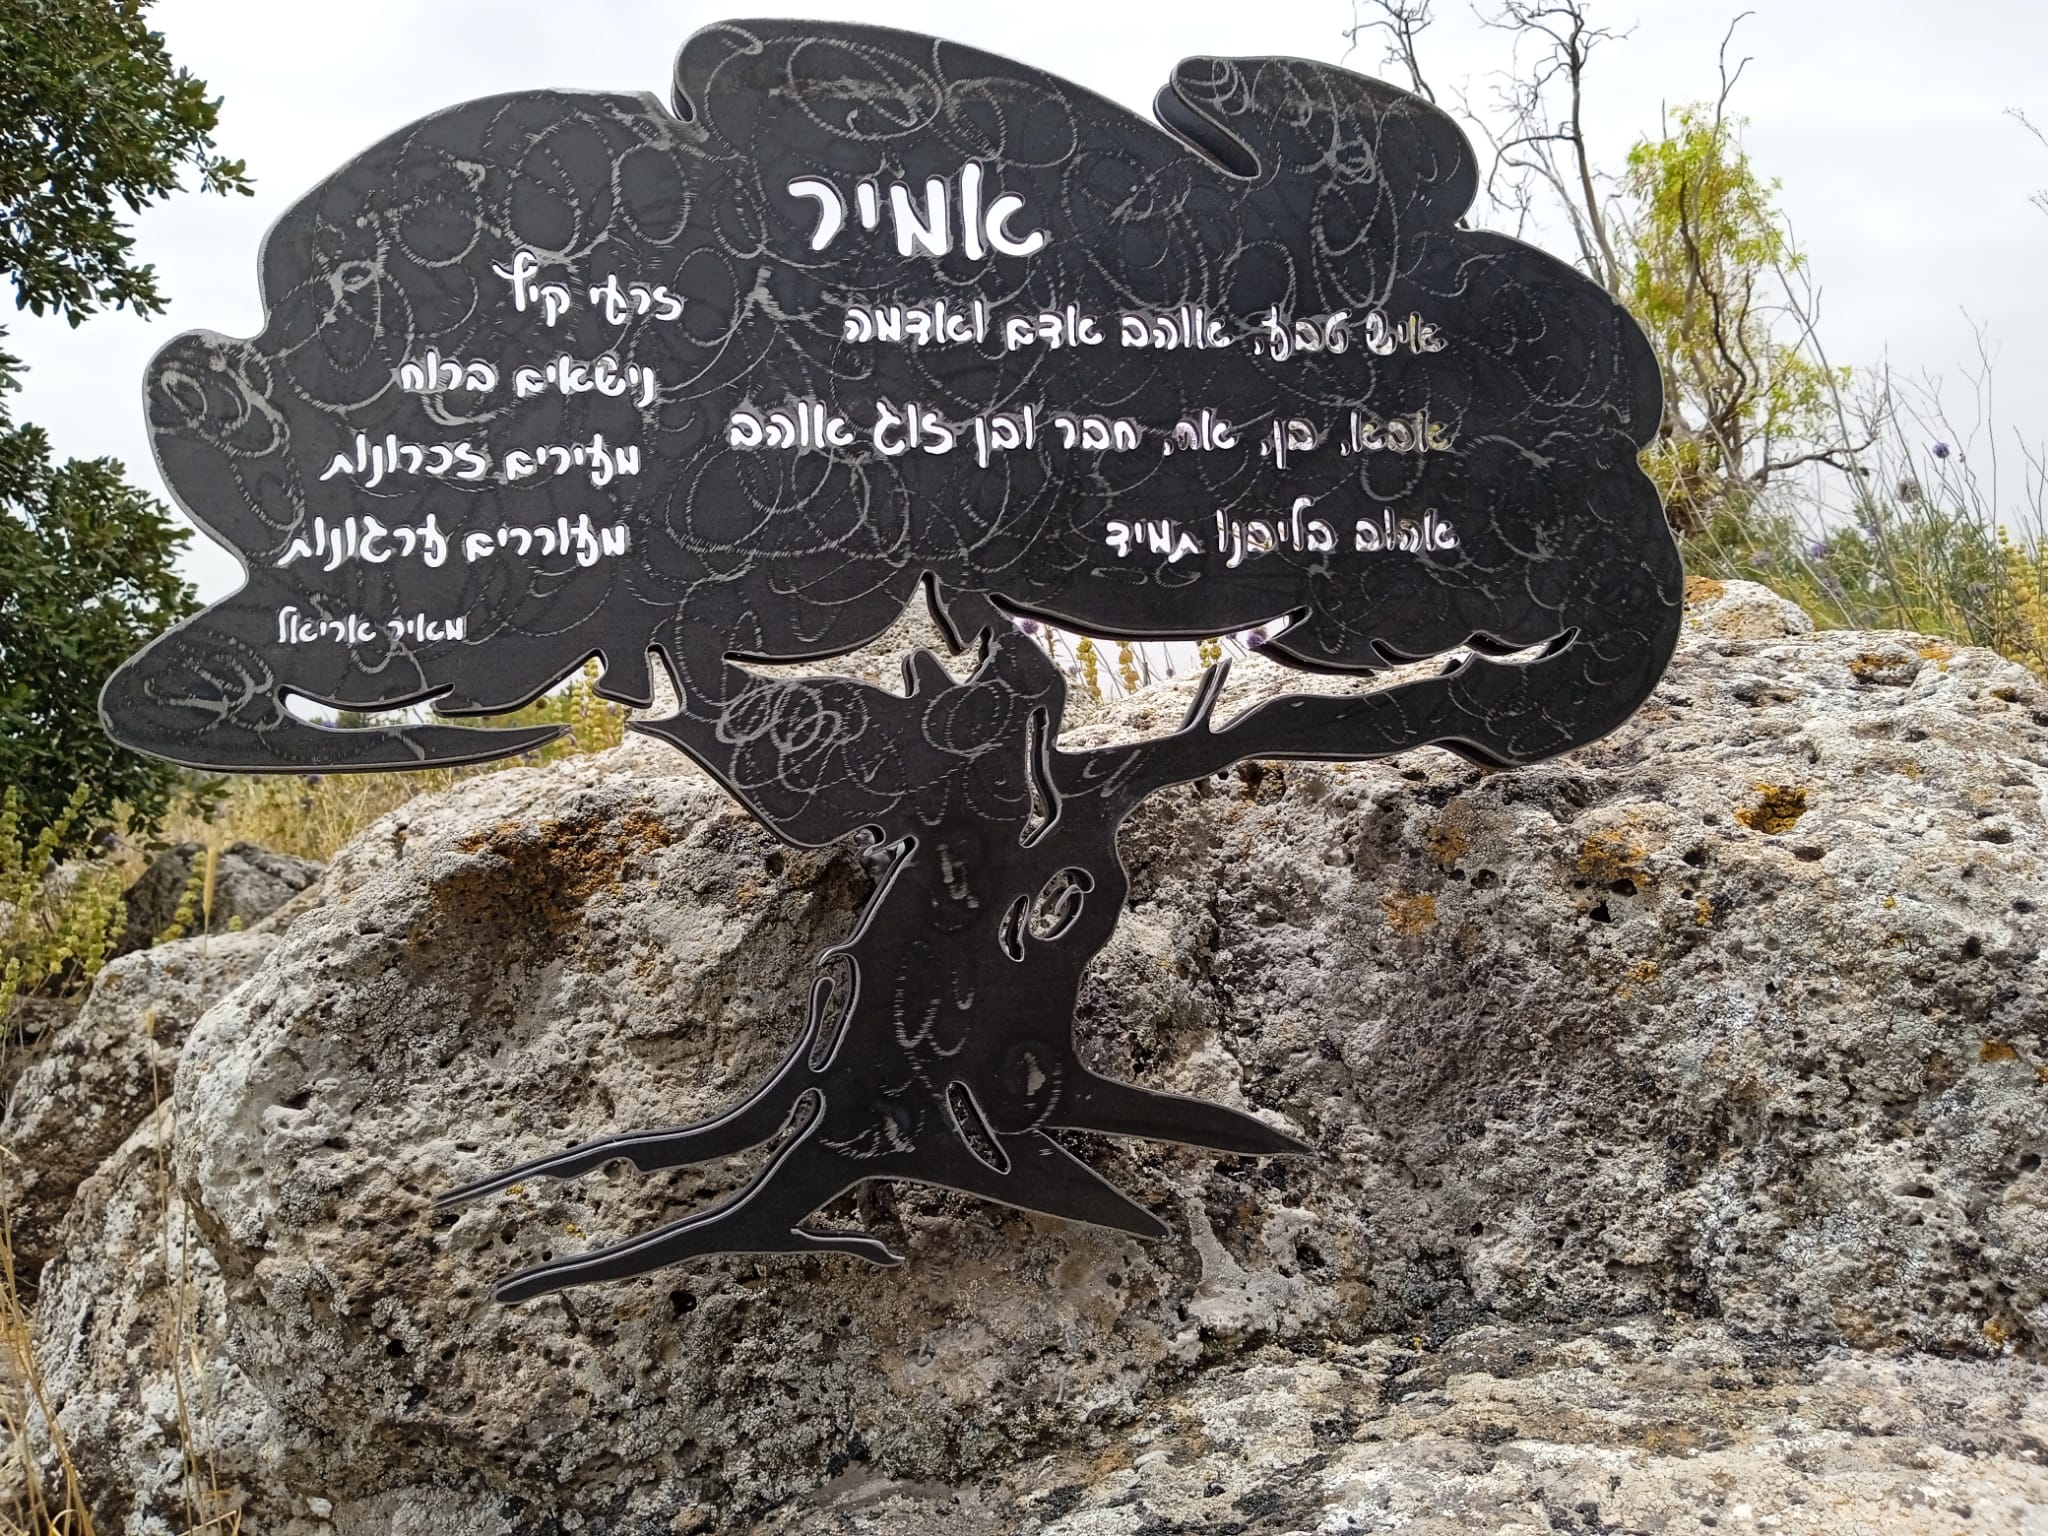 אמיר
איש טבע, אוהב אדם ואדמה
אבא, בן, אח, חבר ובן זוג אוהב
אהוב בליבנו תמיד
זרעי קיץ
נישאים ברוח
מעירים זכרונות
מעוררים ערגונות
מאיר אריאל